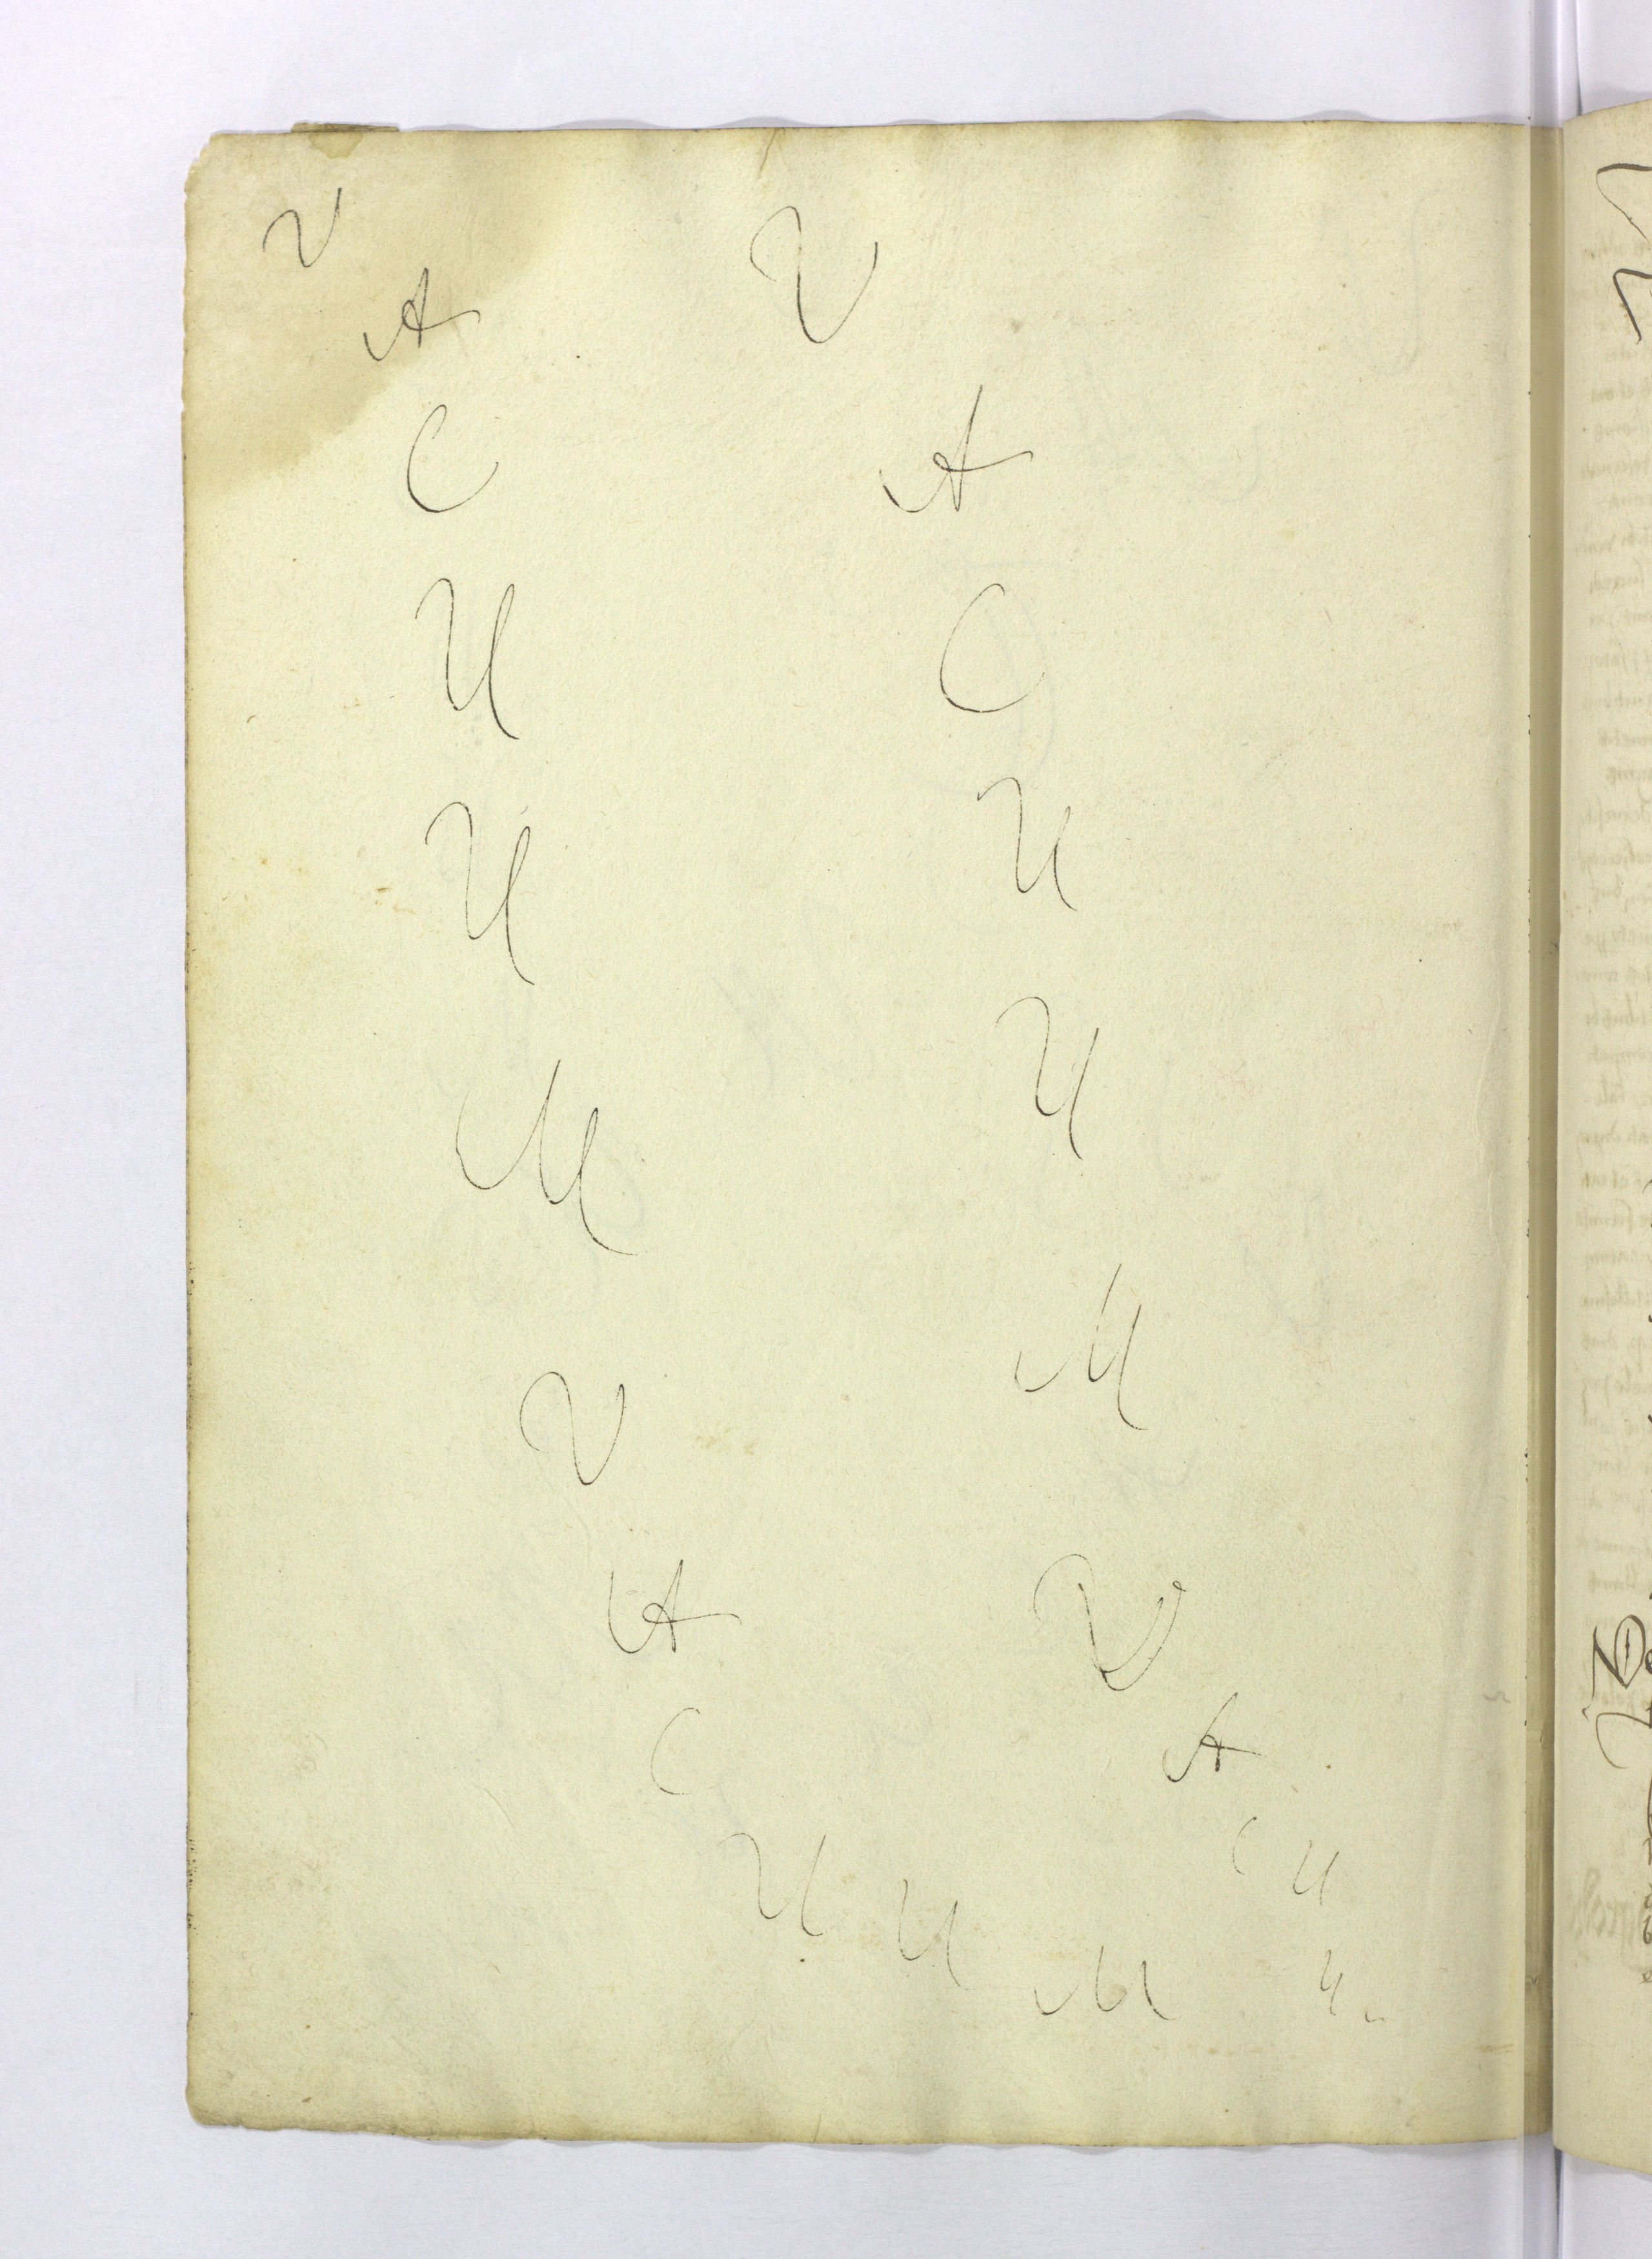 V
A
C
U
U
M
V
A
C
U
U
M
V
A
C
U
U
M
V
A
C
U
U